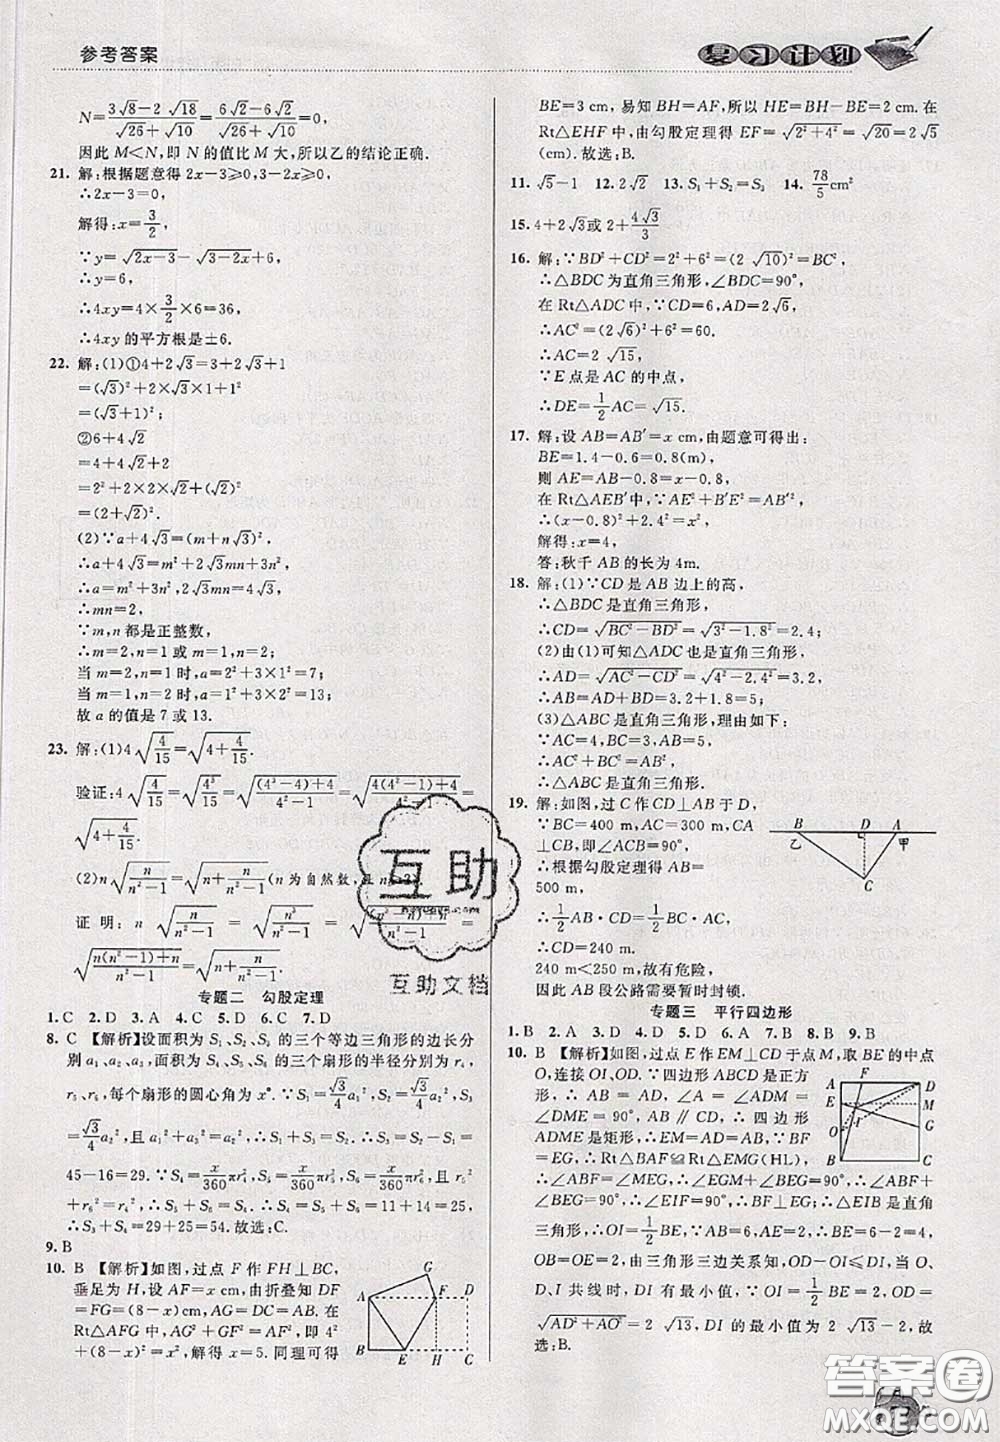 参考答案
N=\frac{3\sqrt{8}-2\sqrt{18}}{\sqrt{26}+\sqrt{18}}=\frac{6\sqrt{2}-6\sqrt{2}}{\sqrt{26}+\sqrt{10}}=0,
因此M<N,即N的值比M大,所以乙的结论正确.
21. 解:根据题意得2x-3≥0,3-2x≥0,
∴2x-3=0,
解得:x=\frac{3}{2},
∵y=\sqrt{2x-3}-\sqrt{3-2x}+6,
∴y=6,
∴4xy=4×\frac{3}{2}×6=36,
∴4xy的平方根是±6.
22. 解:(1)①4+2√3=3+2√3+1
=(√3)²+2×√3×1+1²
=(√3+1)²;
②6+4√2
=4+4√2+2
=2²+2×2×√2+(√2)²
=(2+√2)².
(2)∵a+4√3=(m+n√3)²,
∴a+4√3=m²+2√3mn+3n²,
∴a=m²+3n²,2√3mn=4√3,
∴mn=2,
∵m,n都是正整数,
∴m=2,n=1或m=1,n=2;
当m=2,n=1时,a=2²+3×1²=7;
当m=1,n=2时,a=1²+3×2²=13.
故a的值是7或13.
23. 解:(1)4\sqrt{\frac{4}{15}}=\sqrt{4+\frac{4}{15}}.
验证:4\sqrt{\frac{4}{15}}=\sqrt{\frac{4³}{15}}=\sqrt{\frac{(4³-4)+4}{4²-1}}=\sqrt{\frac{4(4²-1)+4}{4²-1}}=
\sqrt{4+\frac{4}{15}}.
(2)n\sqrt{\frac{n}{n²-1}}=\sqrt{n+\frac{n}{n²-1}}(n为自然数,且n≥3).
证明:n\sqrt{\frac{n}{n²-1}}=\sqrt{\frac{n³}{n²-1}}=\sqrt{\frac{n³-n)+n}{n²-1}}=
\sqrt{\frac{n(n²-1)+n}{n²-1}}=\sqrt{n+\frac{n}{n²-1}}.
专题二 勾股定理
1. C 2. D 3. C 4. C 5. D 6. C 7. D
8. C 【解析】设面积为S₁、S₂、S₃的三个等边三角形的边长分
别a₁、a₂、a₃,面积为S₄、S₅、S₆的三个扇形的半径分别为r₄、
r₅、r₆,每个扇形的圆心角为x°.∵S₁=\frac{√3}{4}a₁²,S₂=\frac{√3}{4}a₂²,S₃
=\frac{√3}{4}a₃²,且a₁²+a₂²=a₃²,∴S₁+S₂=S₃.∴S₃=S₁+S₂=
45-16=29.∵S₄=\frac{x}{360}πr₄²,S₅=\frac{x}{360}πr₅²,S₆=\frac{x}{360}πr₆²,且
r₄²+r₅²=r₆²,∴S₄+S₅=S₆.∴S₆=S₄+S₅=11+14=25,
∴S₃+S₆=29+25=54.故选:C.
9. B
10. B 【解析】如图,过点F作FH⊥BC,
垂足为H,设AF=x cm,由折叠知DF
=FG=(8-x)cm,AG=DC=AB.在
Rt△AFG中,AG²+GF²=AF²,即4²
+(8-x)²=x²,解得x=5.同理可得
A B E H C D F G
BE=3 cm,易知BH=AF,所以HE=BH-BE=2 cm.在
Rt△EHF中,由勾股定理得EF=\sqrt{2²+4²}=√20=2√5
(cm).故选:B.
11. √5-1 12. 2√2 13. S₁+S₂=S₃ 14. \frac{78}{5}cm²
15. 4+2√3或2+\frac{4√3}{3}
16. 解:∵BD²+CD²=2²+6²=(2√10)²=BC²,
∴△BDC为直角三角形,∠BDC=90°.
在Rt△ADC中,∵CD=6,AD=2√6,
∴AC²=(2√6)²+6²=60.
∴AC=2√15,
∵E点是AC的中点,
∴DE=\frac{1}{2}AC=√15.
17. 解:设AB=AB′=x cm,由题意可得出:
BE=1.4-0.6=0.8(m),
则AE=AB-0.8=x-0.8,
在Rt△AEB′中,∵AE²+B′E²=AB′²,
∴(x-0.8)²+2.4²=x²,
解得:x=4,
答:秋千AB的长为4m.
18. 解:(1)∵CD是AB边上的高,
∴△BDC是直角三角形,
∴CD=\sqrt{BC²-BD²}=\sqrt{3²-1.8²}=2.4;
(2)由(1)可知△ADC也是直角三角形,
∴AD=\sqrt{AC²-CD²}=\sqrt{4²-2.4²}=3.2,
∴AB=AD+BD=3.2+1.8=5;
(3)△ABC是直角三角形,理由如下:
∵AC=4,BC=3,AB=5,
∴AC²+BC²=AB²,
∴△ABC是直角三角形.
19. 解:如图,过C作CD⊥AB于D,
∵BC=400 m,AC=300 m,CA
⊥CB,即∠ACB=90°,
∴根据勾股定理得AB=
500 m,
∴\frac{1}{2}AB·CD=\frac{1}{2}BC·AC,
∴CD=240 m.
240 m<250 m,故有危险,
因此AB段公路需要暂时封锁.
B D A 乙 甲 C
专题三 平行四边形
1. B 2. A 3. C 4. D 5. D 6. A 7. B 8. B 9. B
10. B 【解析】如图,过点E作EM⊥CD于点M,取BE的中点
O,连接OI、OD.∵四边形ABCD是正
形,∴AB=AD,∠A=∠ADM=
∠DME=90°,AB∥CD,∴四边形
ADME是矩形,∴EM=AD=AB.∵BF
=EG,∴Rt△BAF≌Rt△EMG(HL),
∴∠ABF=∠MEG,∠AFB=∠EGM.∵∠ABF+∠AFB=90°,∴∠ABF+
∠BEG=90°,∴∠EIF=90°,∴BF⊥EG.∴△EIB是直角
三角形,∴OI=\frac{1}{2}BE.∵AB=6,AE=2,∴BE=6-2=4,
OB=OE=2,由三角形三边关系知,OD-OI≤DI,当O、
D、I共线时,DI有最小值,∵IO=\frac{1}{2}BE=2,∴OD=
\sqrt{AD²+AO²}=2√13,DI的最小值为2√13,故
选:B.
A F D E M O I G B C
互助
互助文档
答案圈
MXQE.COM